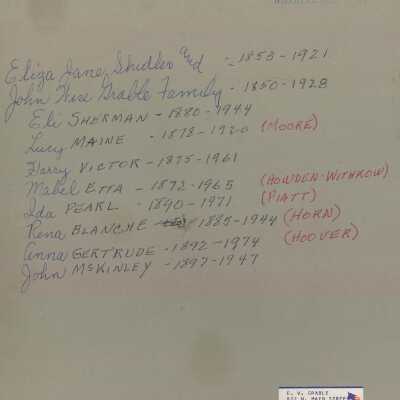 Eliza Jane Shidler and - 1853 - 1921
John Wise Grable Family - 1850 - 1928
Eli SHERMAN - 1880 - 1944
Lucy MAINE - 1878 - 1920 (MOORE)
Harry VICTOR - 1875 - 1961
Mabel ETTA - 1872 - 1965 (HOWDEN-WITHROW)
Ida PEARL - 1890 - 1971 (PIATT)
Rena BLANCHE 1885 - 1944 (HORN)
Anna GERTRUDE - 1892 - 1974 (HOOVER)
John McKINLEY - 1897 - 1947
C. V. GRABLE
N. MAIN STREET